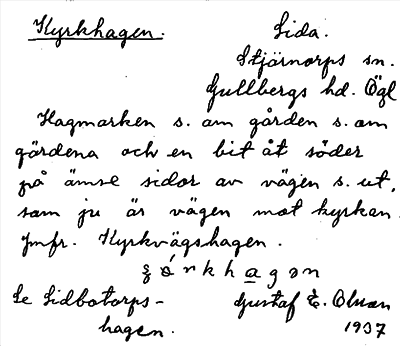 Kyrkhagen.
Lida.
Stjärnorps sn.
Gullbergs hd. Ögl
Hagmarken s. om gården s. om
gärdena och en bit åt söder
på ömse sidor av vägen s. ut,
som ju är vägen mot kyrkan.
Jmfr. Kyrkvägshagen.
Se Lidbotorps-
hagen.
Gustaf E. Olsson
1937